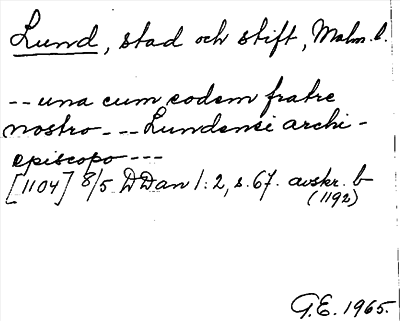 Lund, stad och stift, Malm. l.
-- una cum eodem fratre
nostro --- Lundensi archi-
episcopo ---
[1104] 8/5 DDan 1:2, s. 67. avskr. b
(1192)
G.E. 1965.